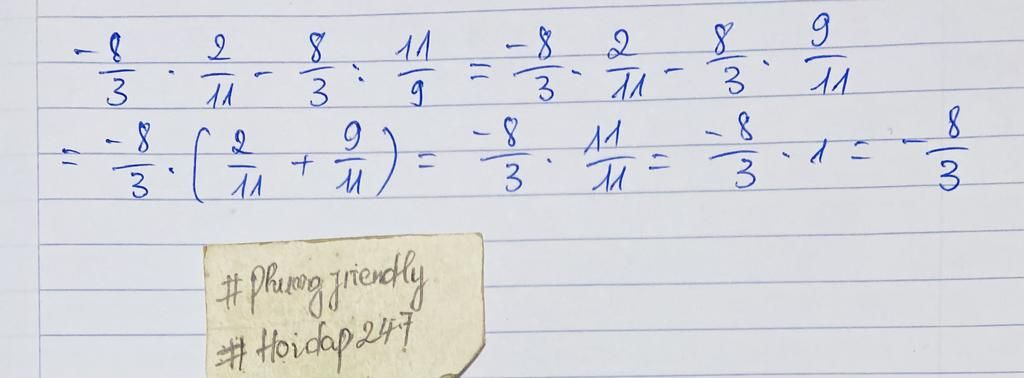 -8/3 . 2/11 - 8/3 : 11/9 = -8/3 . 2/11 - 8/3 . 9/11
= -8/3 . (2/11 + 9/11) = -8/3 . 11/11 = -8/3 . 1 = -8/3
# Phuong friendly
# Hoidap247